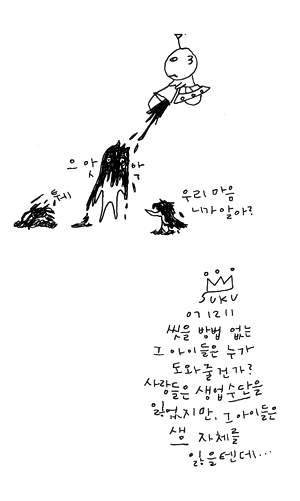 으앗
악
퉤!
우리 마음
니가 알아?
SUKU
071211
씻을 방법 없는
그 아이들은 누가
도와줄건가?
사람들은 생업수단을
잃었지만, 그 아이들은
생 자체를
잃을텐데...